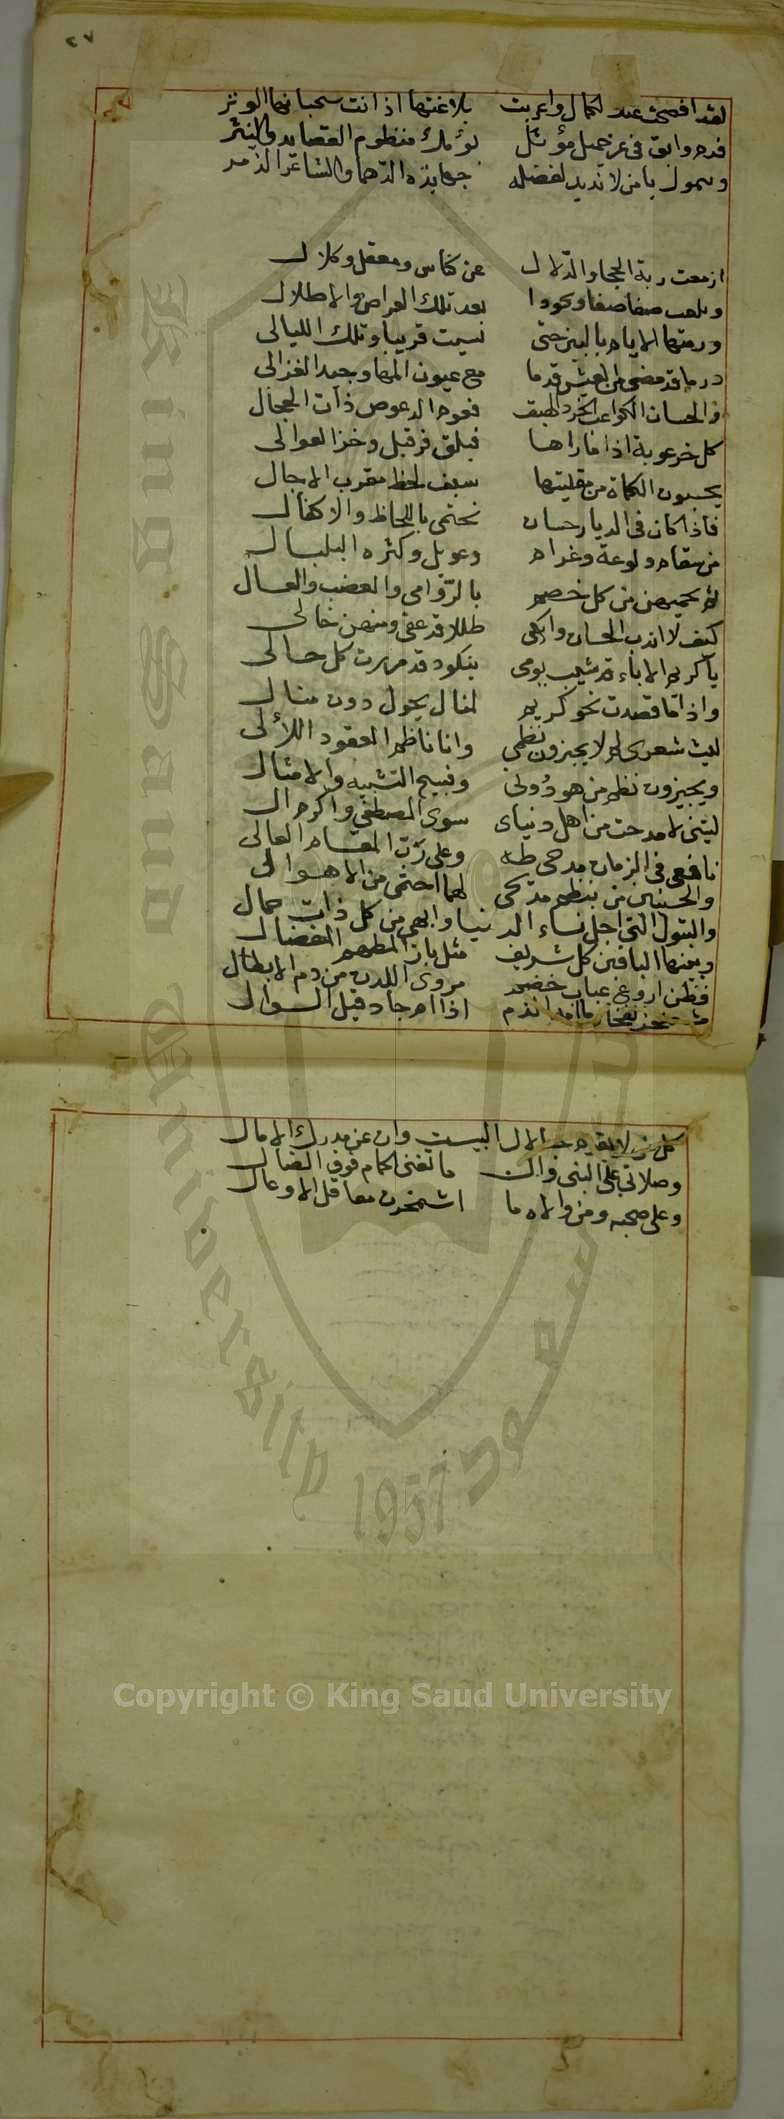 ٤٧
لقد افصحت عند الكمال واعربت بلاغتها اذ انت سحبانها الوتر
فدم وابق في عز جميل مؤثل يؤمك منظوم القصايد والنثر
ويمول يا من لا نديد لفضله جهابذه الدهما والشاعر الذمر
ازمعت ربة الحجا والدلال عن كناس ومعقل وكلال
وبلعب صفاصفا وكودا بعد تلك العراص والاطلال
ورمتها الايام بالبين حتى نسيت قربنا وتلك الليالى
در ما قد مضى من العيش قدما مع عيون المها وجيد الغزالى
والحسان الكواعب الخرد الهيف فعوم الدعوص ذات الحجال
كل خرعوبة اذا ما راها
يحسبون الكماة من مقلتيها بسيف لحظ مقرب الاجال
فاذا كان فى الديار حسان تحتمى باللحاظ والاكفال
من سقام ولوعة وغرام وعويل وكثره البلبال
لم يحميهن من كل خصم بالرواحى والعضب والعسال
كيف لا اندب الحسان وابكى طللا قد عفى ومنهن خالى
يا كريم الاباء قد شيب يومى بنكود قد مررت كل حالى
واذا ما قصدت نحو كريم لمنال يحول دون منال
ليت شعرى لم لا يجيزون نظمى وانا ناظم العقود اللآلى
ويجيزون نظم من هو دونى وقبيح التشبيه والامثال
ليتنى لا مدحت من اهل دنياى سوى المصطفى واكرم ال
نافعى فى الزمان مدحى طه وعلى رب المقام العالى
والحسنين من بنظم مديحى لهما احتمى من الاهوالى
والبتول التى اجل نساء الدنيا وابهى من كل ذات جمال
وبنيها الباقين كل شريف مثل باز المطهم المفضال
فطن اروع عباب خضم مروى اللدن من دم الابطال
اذا ام جاد قبل السوال
كل من لا يقدم حب الال البيت وان عن مدرك الامال
وصلاتى على النبى وال ما تغنى الحمام فوق الضال
وعلى صحبه ومن والاه ما اشمخرت معاقل الاوعال
King Saud University
1957
Copyright © King Saud University